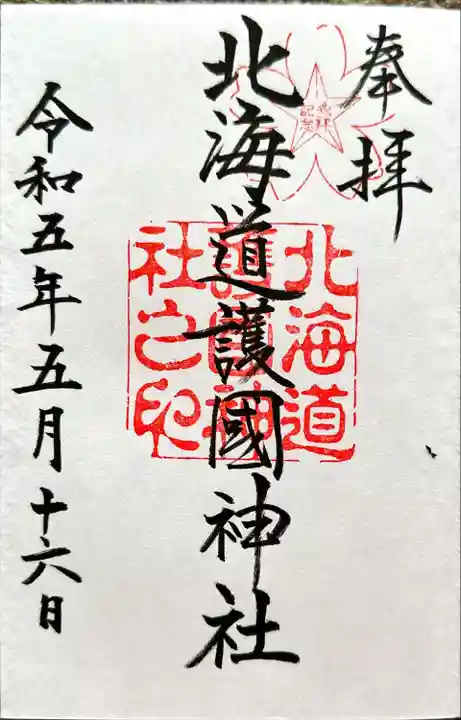 奉拝
北海道護國神社
北海道
護國神
社之印
参拝
記念
令和五年五月十六日